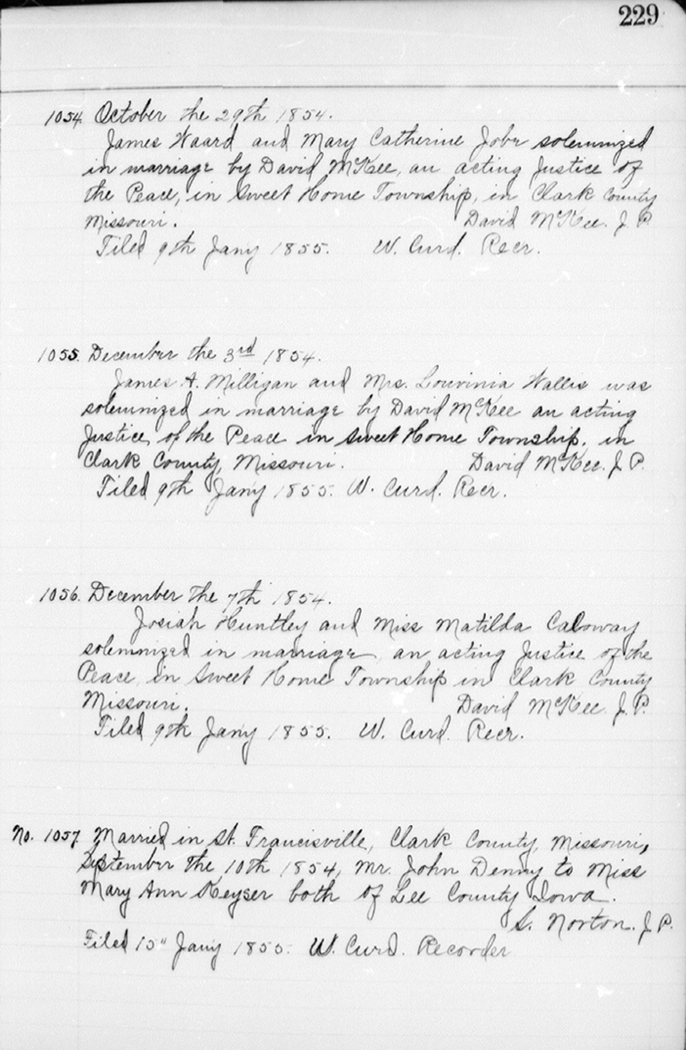 229
1054. October the 29th 1854.
James Waard and Mary Catherine Jobe solemnized
in marriage by David McKee, an acting Justice of
the Peace, in Sweet Home Township, in Clark County
Missouri. David McKee. J. P.
Filed 9th Jany 1855. W. Curd. Recr.
1055. December the 3rd 1854.
James A. Milligan and Mrs. Louvinia Wallis was
solemnized in marriage by David McKee an acting
Justice, of the Peace in Sweet Home Township. in
Clark County, Missouri. David McKee. J. P.
Filed 9th Jany 1855. W. Curd. Recr.
1056. December the 7th 1854.
Josiah Huntley and Miss Matilda Caloway
solemnized in marriage, an acting Justice of the
Peace, in Sweet Home Township in Clark County
Missouri. David McKee. J. P.
Filed 9th Jany 1855. W. Curd. Recr.
No. 1057. Married in St. Francisville, Clark County, Missouri,
September the 10th 1854, Mr. John Denny to Miss
Mary Ann Keyser both of Lee County Iowa.
S. Norton. J. P.
Filed 15" Jany 1855. W. Curd. Recorder